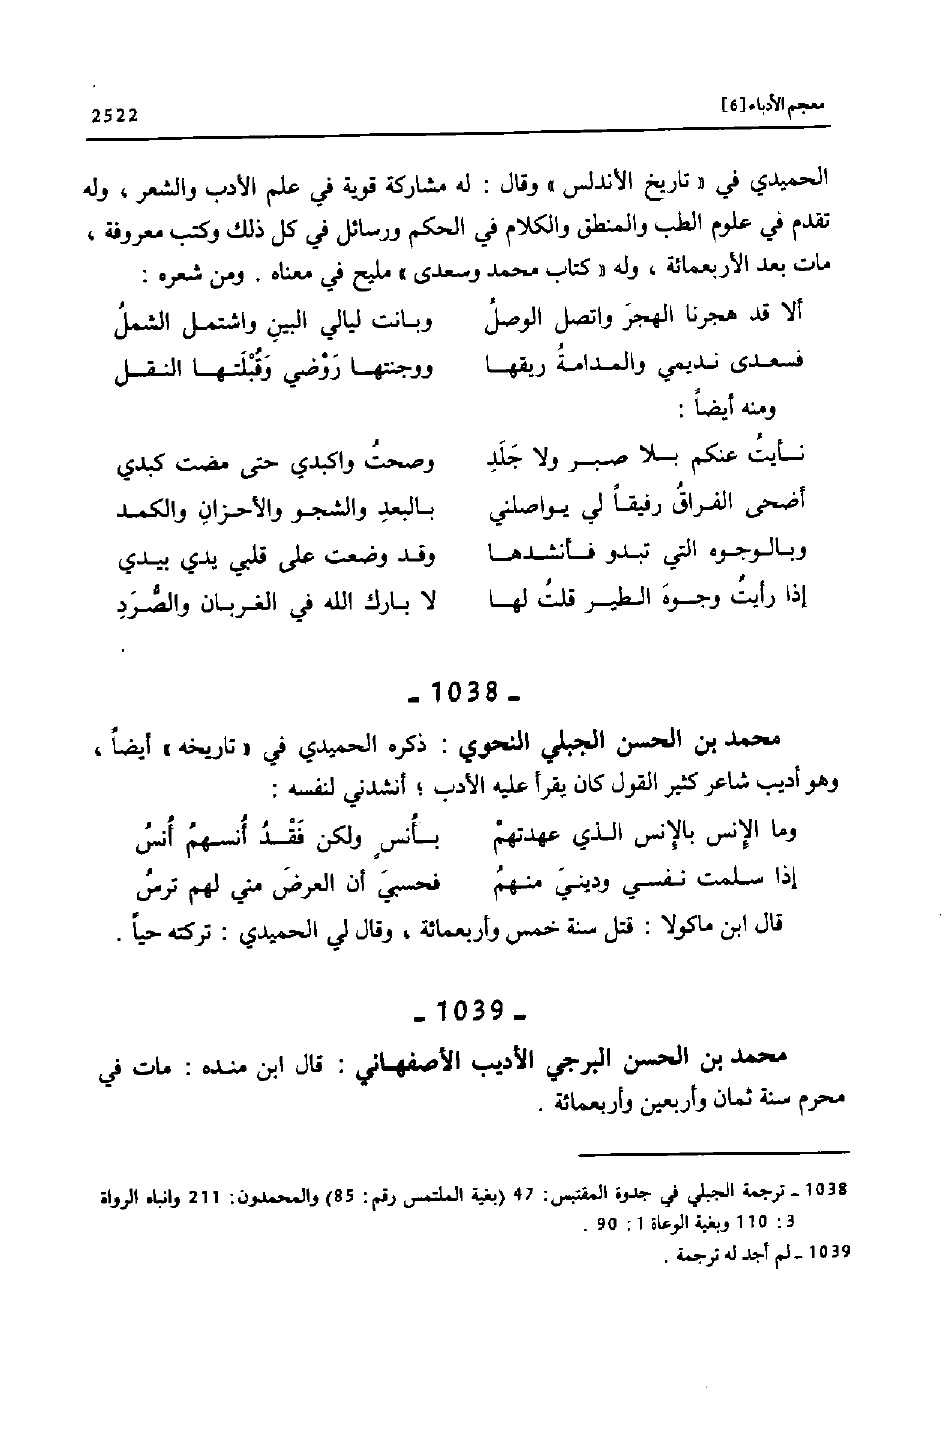 معجم الأدباء [6]
2522
الحميدي في « تاريخ الأندلس » وقال : له مشاركة قوية في علم الأدب والشعر ، وله
تقدم في علوم الطب والمنطق والكلام في الحكم ورسائل في كل ذلك وكتب معروفة ،
مات بعد الأربعمائة ، وله « كتاب محمد وسعدى » مليح في معناه . ومن شعره :
ألا قد هجرنا الهجرَ واتصل الوصلُ وبانت ليالي البينِ واشتمل الشملُ
فسعدى نديمي والمدامةُ ريقها ووجنتها رَوْضي وَقُبْلَتها النقل
ومنه أيضاً :
نأيتُ عنكم بلا صبر ولا جَلَدِ وصحتُ واكبدي حتى مضت كبدي
أضحى الفراقُ رفيقاً لي يواصلني بالبعدِ والشجو والأحزانِ والكمد
وبالوجوه التي تبدو فأنشدها وقد وضعت على قلبي يدي بيدي
إذا رأيتُ وجوهَ الطير قلتُ لها لا بارك الله في الغربان والصُّرَدِ
ـ 1038 ـ
محمد بن الحسن الجبلي النحوي : ذكره الحميدي في « تاريخه » أيضاً ،
وهو أديب شاعر كثير القول كان يقرأ عليه الأدب ؛ أنشدني لنفسه :
وما الإنس بالإنس الذي عهدتهمْ بأنسٍ ولكن فَقْدُ أُنسهمُ أنسُ
إذا سلمت نفسي ودينيَ منهمُ فحسبيَ أن العرضَ مني لهم ترسُ
قال ابن ماكولا : قتل سنة خمس وأربعمائة ، وقال لي الحميدي : تركته حياً .
ـ 1039 ـ
محمد بن الحسن البرجي الأديب الأصفهاني : قال ابن منده : مات في
محرم سنة ثمان وأربعين وأربعمائة .
1038 ـ ترجمة الجبلي في جذوة المقتبس: 47 (بغية الملتمس رقم: 85) والمحمدون: 211 وانباه الرواة
3: 110 وبغية الوعاة 1: 90 .
1039 ـ لم أجد له ترجمة .